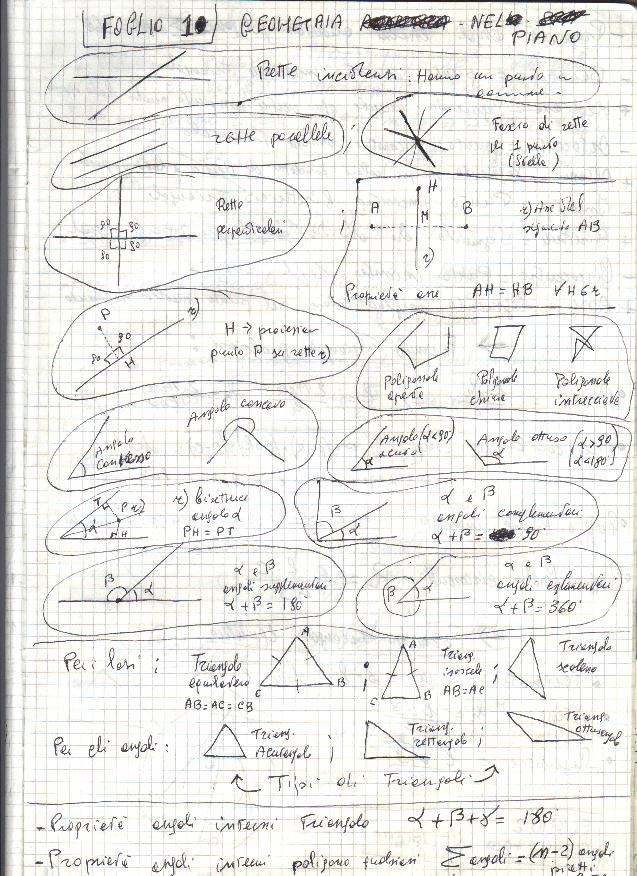 FOGLIO 1 GEOMETRIA NEL
PIANO
Rette incidenti: Hanno un punto in
comune.
rette parallele ;
Fascio di rette
per 1 punto
(Stella)
90 90
90 90
Rette
perpendicolari ;
H
A M B
r)
r) Asse del
segmento AB
Proprietà asse AH = HB ∀H∈r
P r)
90
90 H
H → proiezione
punto P su retta r)
Poligonale
aperta
Poligonale
chiusa
Poligonale
intrecciata
Angolo
convesso
Angolo concavo
α
Angolo (α<90)
acuto
Angolo ottuso (α>90)
α (α<180°)
T P r)
α H
r) bisettrice
angolo α
PH = PT
β
α
α e β
angoli complementari
α + β = 90°
β α
α e β
angoli supplementari
α + β = 180°
β α
α e β
angoli esplementari
α + β = 360°
Per i lati :
Triangolo
equilatero
AB=AC=CB
A
C B
;
A
C B
Triang.
isoscele ;
AB=AC
Triangolo
scaleno
Per gli angoli :
Triang.
Acutangolo ;
Triang.
rettangolo ;
Triang.
ottusangolo
Tipi di Triangoli
- Proprietà angoli interni Triangolo α + β + γ = 180°
- Proprietà angoli interni poligono qualsiasi ∑ angoli = (n-2) angoli
piatti